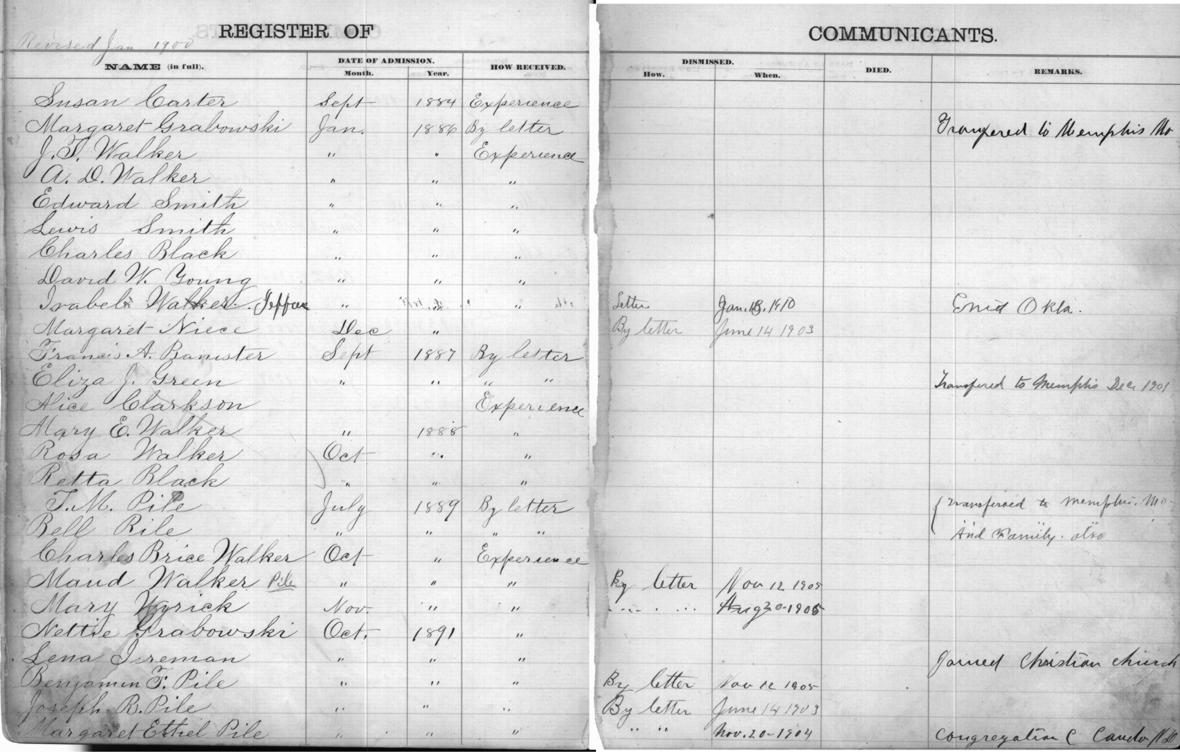 Revised Jan 1900
REGISTER OF COMMUNICANTS.
NAME (in full). DATE OF ADMISSION. HOW RECEIVED. DISMISSED. DIED. REMARKS.
Month. Year. How. When.
Susan Carter Sept 1884 Experience
Margaret Grabowski Jan. 1886 By letter Transfered to Memphis Mo
J.T. Walker " " Experience
A. D. Walker " " "
Edward Smith " " "
Lewis Smith " " "
Charles Black " " "
David W. Young " " "
Isabel Walker " " " Letter Jan. 18, 1910 Enid Okla.
Margaret Niece Dec " By letter June 14 1903
Francis A. Banister Sept 1887 By letter
Eliza J. Green " " " " Transfered to Memphis Dec 1901
Alice Clarkson Experience
Mary E. Walker " 1888 "
Rosa Walker Oct " "
Retta Black " " "
T. M. Pile July 1889 By letter Transferred to Memphis. Mo
Bell Pile " " " " And Family. also
Charles Brice Walker Oct " Experience
Maud Walker Pile " " " By letter Nov 12 1905
Mary Wyrick Nov. " " " " Aug 20-1905
Nettie Grabowski Oct. 1891 "
Lena Ireman " " " Joined Christian church
Benjamin F. Pile " " " By letter Nov 12 1905
Joseph R. Pile " " " By letter June 14 1903
Margaret Ethel Pile " " " " " Nov. 20-1904 Congregation